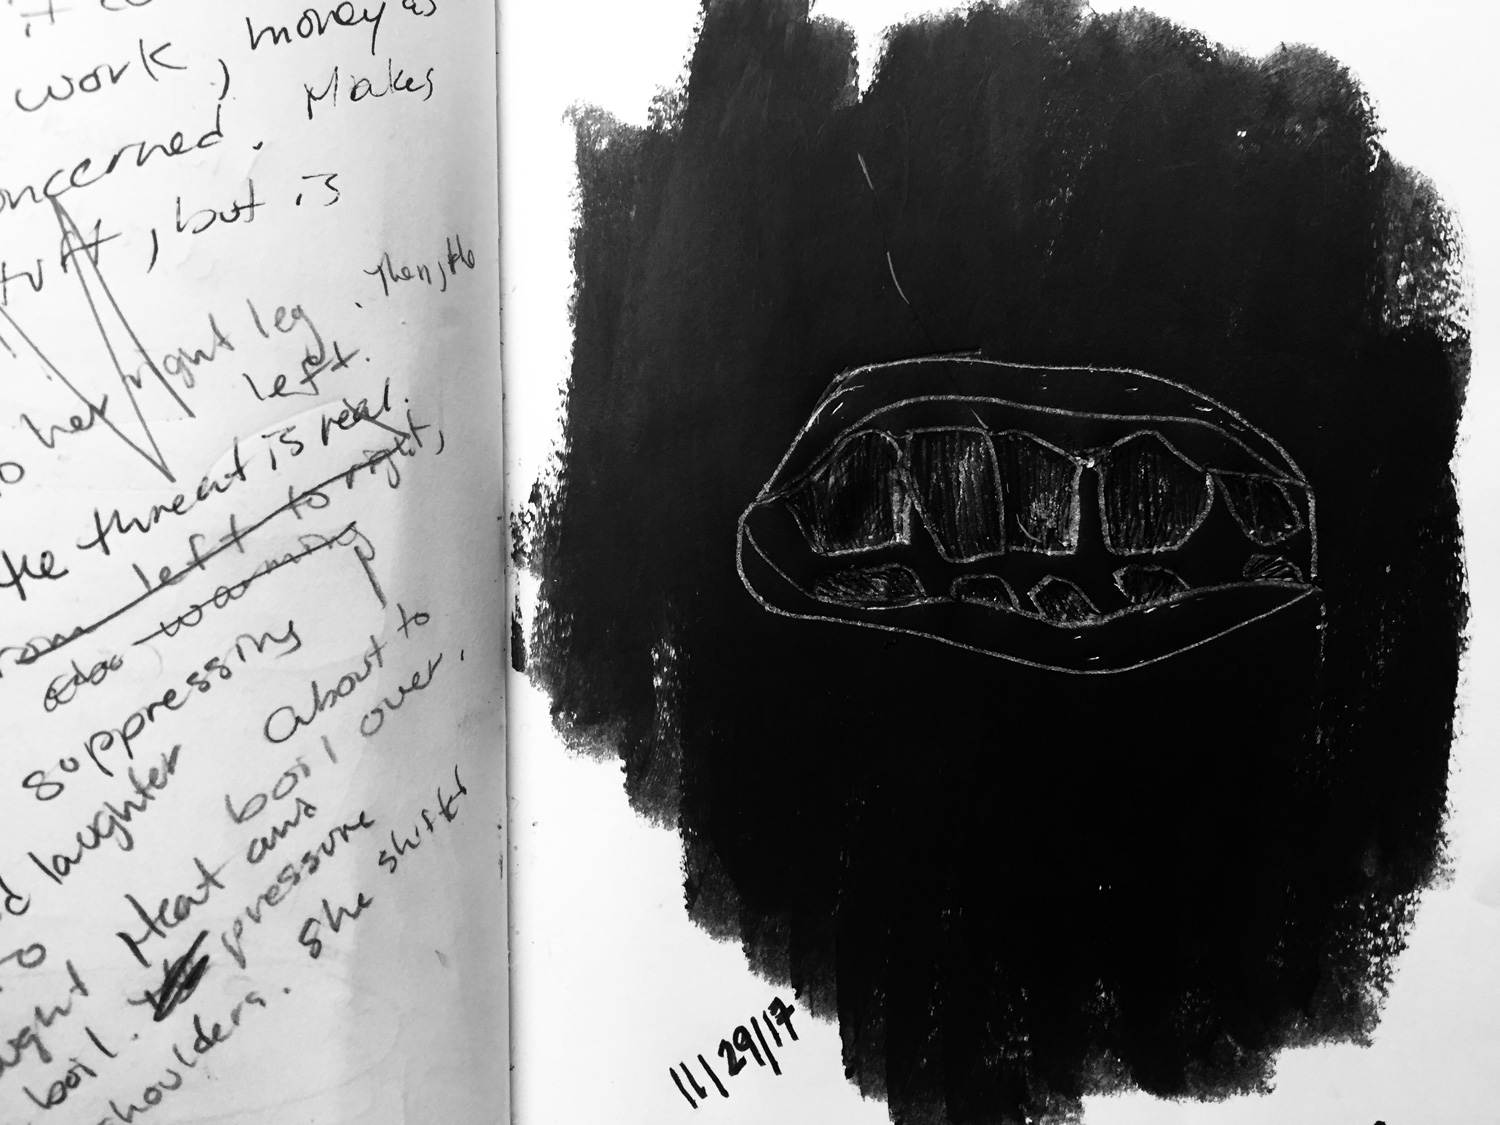 work, money is
concerned. Makes
stuff, but is
her right leg. Then, the
left.
the threat is real.
from left to right,
warning
suppressing
laughter about to
boil over.
Heat and
pressure
boil. She shifts
shoulders.
11/29/17